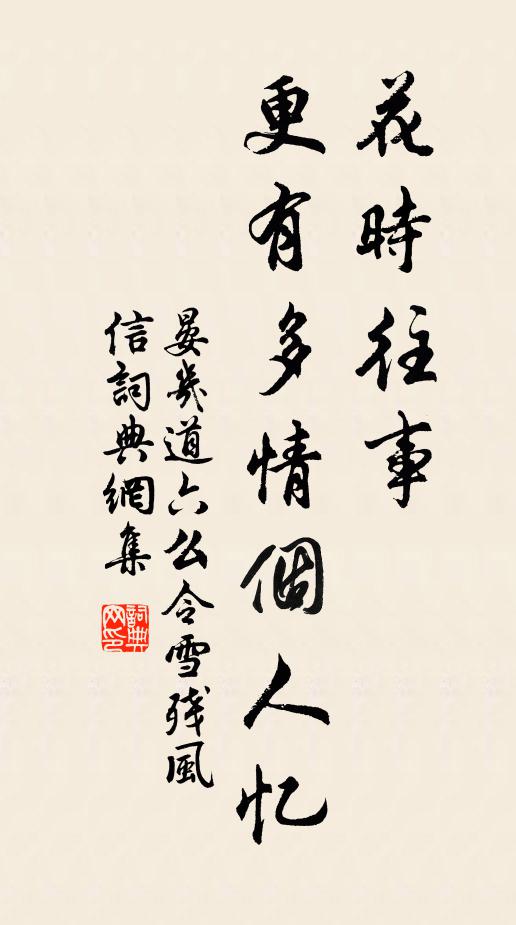 花時往事
更有多情個人忆
晏幾道六么令雪殘風
信詞典網集
詞典
网印